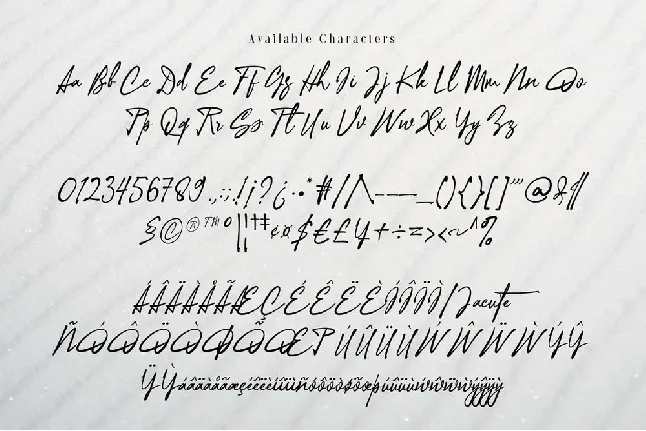 Available Characters
Aa Bb Cc Dd Ee Ff Gg Hh Ii Jj Kk Ll Mm Nn Oo
Pp Qq Rr Ss Tt Uu Vv Ww Xx Yy Zz
0123456789.,:;!¡?¿·•*#/\-–—_(){}[]'"@&¶
§©®™°|¦†‡¢¤$€£¥+÷=><~^%
ÁÂÄÀÅÃÆÇÉÊËÈÍÎÏÌ/Jacute
ÑÓÔÖÒØÕŒÞÚÛÜÙẂŴẄẀÝŶ
ŸỲáâäàåãæçéêëèíîïìñóôöòøõœþúûüùẃŵẅẁýŷÿỳ